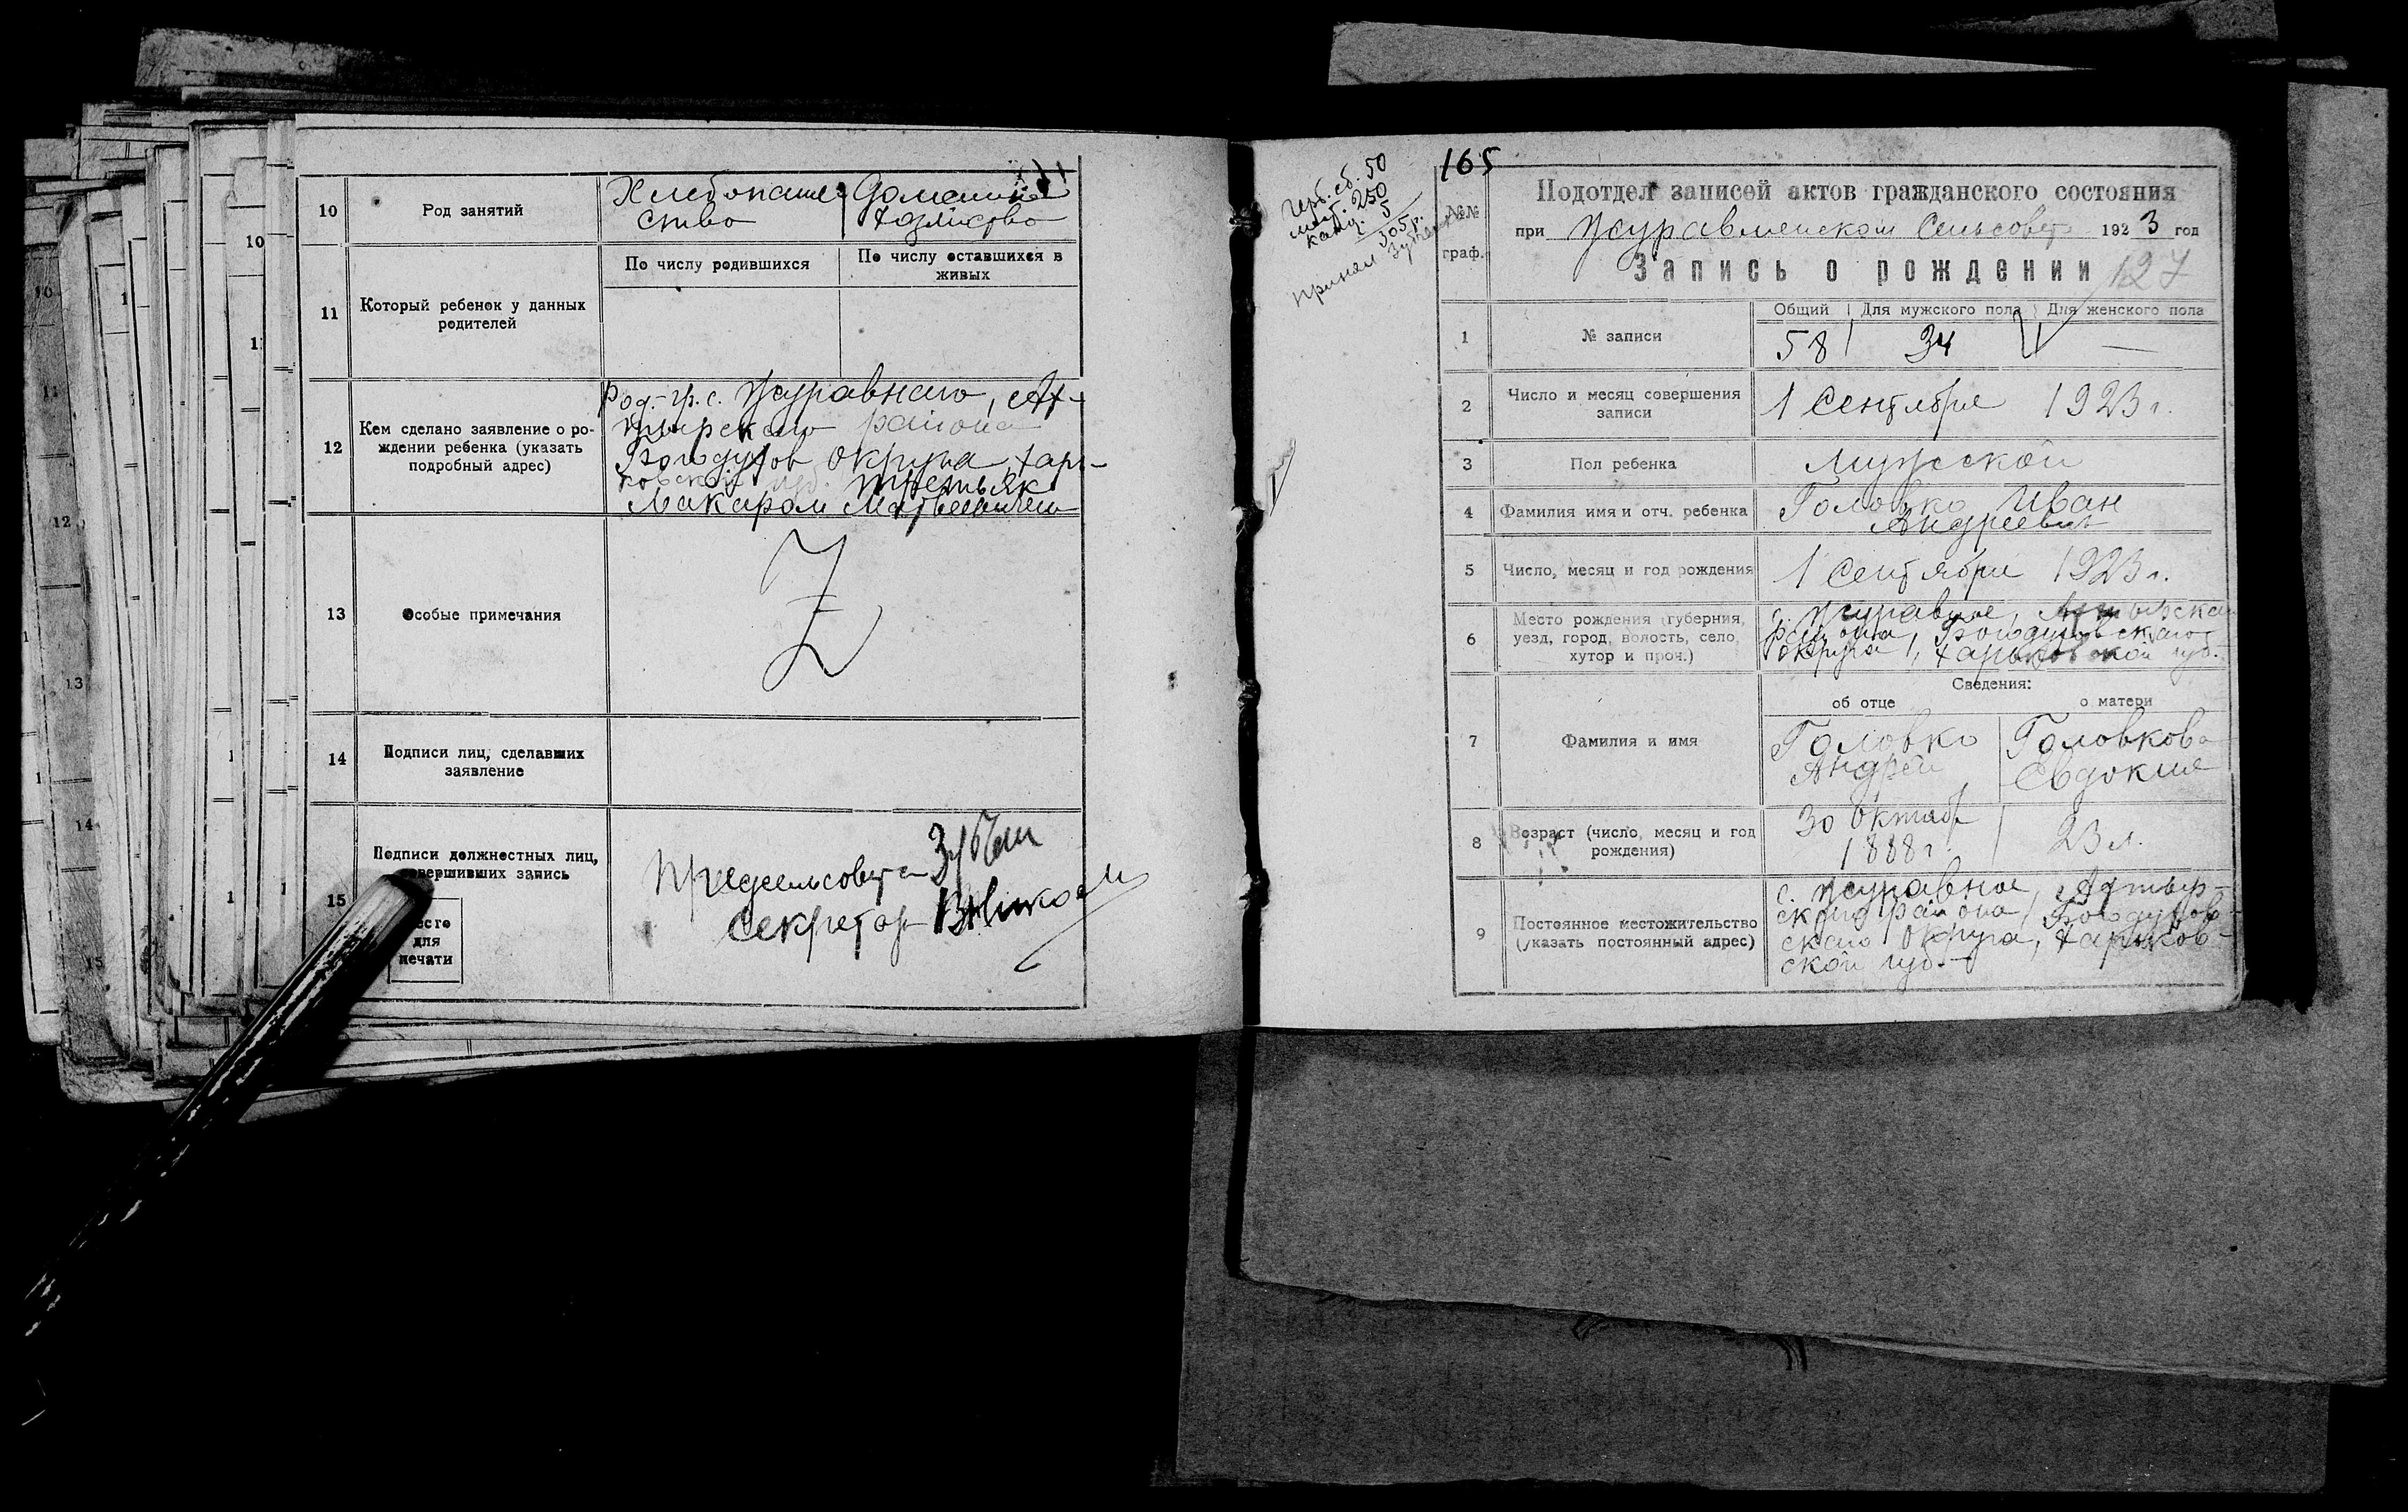 10 Род занятий Хлебопаше- Домашнее
ство хозяйство
11 Который ребенок у данных родителей
По числу родившихся По числу оставшихся в живых
12 Кем сделано заявление о ро-
ждении ребенка (указать
подробный адрес)
Род.-гр. с. Журавного, Ах-
тырскаго района
Богодухов округа, Харь-
ковской губ. Третьяк
Макаром Матвеевичем
13 Особые примечания
14 Подписи лиц, сделавших
заявление
15 Подписи должностных лиц,
совершивших запись
Предсельсовета
Секретар
для
печати
10
11
12
13
14
15
165
Герб. сб. 50
250
канц. 5
305 р.
принял
№№
граф.
Подотдел записей актов гражданского состояния
при Журавленском Сельсовете 1923 год
Запись о рождении 127
Общий Для мужского пола Для женского пола
1 № записи 58 34 —
2 Число и месяц совершения
записи
1 Сентября 1923 г.
3 Пол ребенка Мужской
4 Фамилия имя и отч. ребенка Головко Иван
Андреевич
5 Число, месяц и год рождения 1 Сентября 1923 г.
6 Место рождения (губерния,
уезд, город, волость, село,
хутор и проч.)
с. Журавное, Ахтырскаго
района, Богодуховскаго
округа, Харьковской губ.
Сведения:
об отце о матери
7 Фамилия и имя
Головко Головкова
Андрей Евдокия
8 Возраст (число, месяц и год
рождения)
30 октябр 23 л.
1888 г.
9 Постоянное местожительство
(указать постоянный адрес)
с. Журавное, Ахтыр-
скаго района, Богодухов-
скаго округа, Харьков-
ской губ.